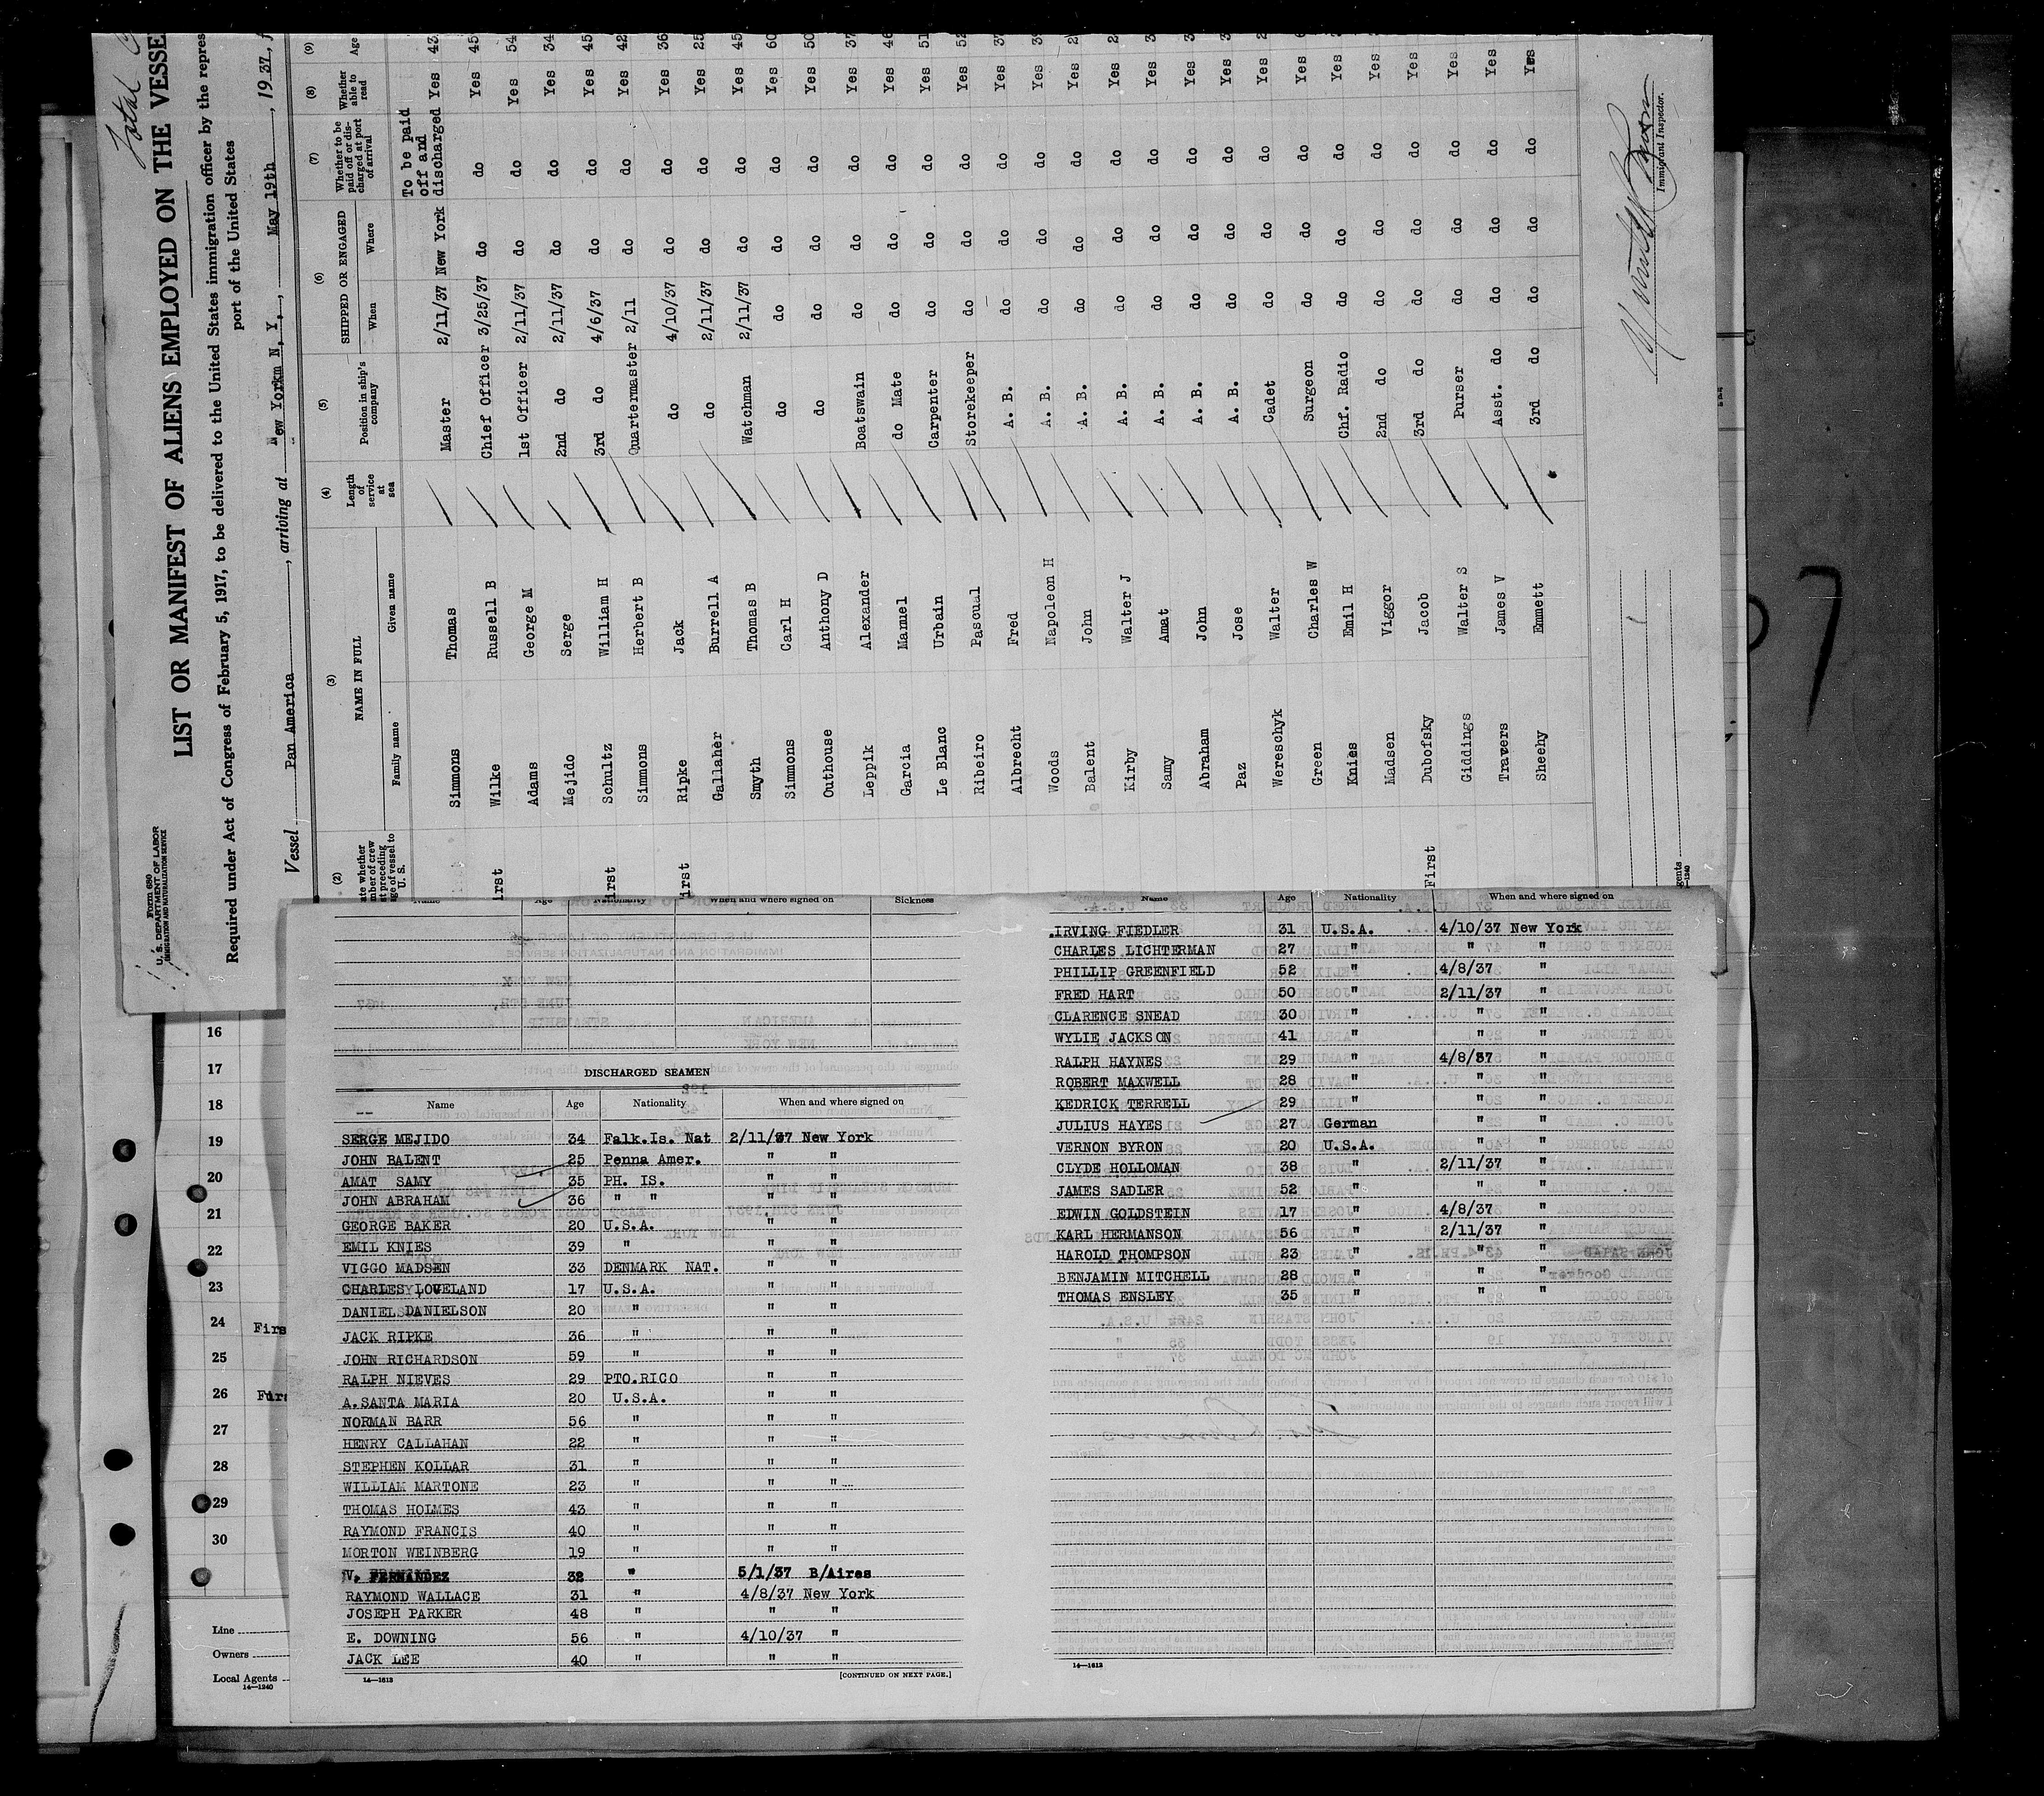 Total
Form 680
U. S. DEPARTMENT OF LABOR
IMMIGRATION AND NATURALIZATION SERVICE
LIST OR MANIFEST OF ALIENS EMPLOYED ON THE VESSE
Required under Act of Congress of February 5, 1917, to be delivered to the United States immigration officer by the repres
port of the United States
Vessel Pan America, arriving at New Yorkm N, Y,, May 19th, 1937, f
(2) (3) (4) (5) (6) (7) (8) (9)
NAME IN FULL SHIPPED OR ENGAGED
Family name Given name Length of service at sea Position in ship's company When Where Whether to be paid off or discharged at port of arrival Whether able to read Age
To be paid
off and
Simmons Thomas Master 2/11/37 New York discharged Yes 43
Wilke Russell B Chief Officer 3/25/37 do do Yes 45
Adams George M 1st Officer 2/11/37 do do Yes 54
Mejido Serge 2nd do 2/11/37 do do Yes 34
Schultz William H 3rd do 4/6/37 do do Yes 45
Simmons Herbert B Quartermaster 2/11 do do Yes 42
Ripke Jack do 4/10/37 do do Yes 36
Gallaher Burrell A do 2/11/37 do do Yes 25
Smyth Thomas B Watchman 2/11/37 do do Yes 45
Simmons Carl H do do do do Yes 60
Outhouse Anthony D do do do do Yes 50
Leppik Alexander Boatswain do do do Yes 37
Garcia Manuel do Mate do do do Yes 46
Le Blanc Urbain Carpenter do do do Yes 51
Ribeiro Pascual Storekeeper do do do Yes 52
Albrecht Fred A. B. do do do Yes 37
Woods Napoleon H A. B. do do do Yes
Balent John A. B. do do do Yes
Kirby Walter J A. B. do do do Yes
Samy Amat A. B. do do do Yes
Abraham John A. B. do do do Yes
Paz Jose A. B. do do do Yes
Wereschyk Walter Cadet do do do Yes
Green Charles W Surgeon do do do Yes
Knies Emil H Chf. Radio do do do Yes
Madsen Viggor 2nd do do do do Yes
First Dubofsky Jacob 3rd do do do do Yes
Giddings Walter S Purser do do do Yes
Travers James V Asst. do do do do Yes
Sheehy Emmett 3rd do do do do Yes
Immigrant Inspector.
16
17
18
19
20
21
22
23
24 Firs
25
26 Firs
27
28
29
30
Line
Owners
Local Agents
14—1240
Name Age Nationality When and where signed on Sickness
DISCHARGED SEAMEN
Name Age Nationality When and where signed on
SERGE MEJIDO 34 Falk.Is. Nat 2/11/37 New York
JOHN BALENT 25 Penna Amer. " "
AMAT SAMY 35 PH. IS. " "
JOHN ABRAHAM 36 " " " "
GEORGE BAKER 20 U.S.A. " "
EMIL KNIES 39 " " "
VIGGO MADSEN 33 DENMARK NAT. " "
CHARLES LOVELAND 17 U.S.A. " "
DANIELS DANIELSON 20 " " "
JACK RIPKE 36 " " "
JOHN RICHARDSON 59 " " "
RALPH NIEVES 29 PTO.RICO " "
A.SANTA MARIA 20 U.S.A. " "
NORMAN BARR 56 " " "
HENRY CALLAHAN 22 " " "
STEPHEN KOLLAR 31 " " "
WILLIAM MARTONE 23 " " "
THOMAS HOLMES 43 " " "
RAYMOND FRANCIS 40 " " "
MORTON WEINBERG 19 " " "
V. FERNANDEZ 32 " 5/1/37 B/Aires
RAYMOND WALLACE 31 " 4/8/37 New York
JOSEPH PARKER 48 " " "
E. DOWNING 56 " 4/10/37 "
JACK LEE 40 " " "
14—1613 [CONTINUED ON NEXT PAGE.]
Name Age Nationality When and where signed on
IRVING FIEDLER 31 U.S.A. 4/10/37 New York
CHARLES LICHTERMAN 27 " " "
PHILLIP GREENFIELD 52 " 4/8/37 "
FRED HART 50 " 2/11/37 "
CLARENCE SNEAD 30 " " "
WYLIE JACKSON 41 " " "
RALPH HAYNES 29 " 4/8/37 "
ROBERT MAXWELL 28 " " "
KEDRICK TERRELL 29 " " "
JULIUS HAYES 27 German " "
VERNON BYRON 20 U.S.A. " "
CLYDE HOLLOMAN 38 " 2/11/37 "
JAMES SADLER 52 " " "
EDWIN GOLDSTEIN 17 " 4/8/37 "
KARL HERMANSON 56 " 2/11/37 "
HAROLD THOMPSON 23 " " "
BENJAMIN MITCHELL 28 " " "
THOMAS ENSLEY 35 " " "
14—1613
7